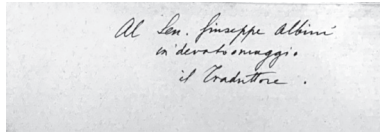 Al Sen. Giuseppe Albini
in devoto omaggio
il Traduttore.